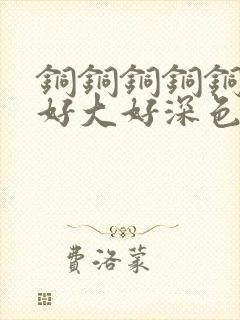 銅銅銅銅銅
好大好深色
費洛蒙